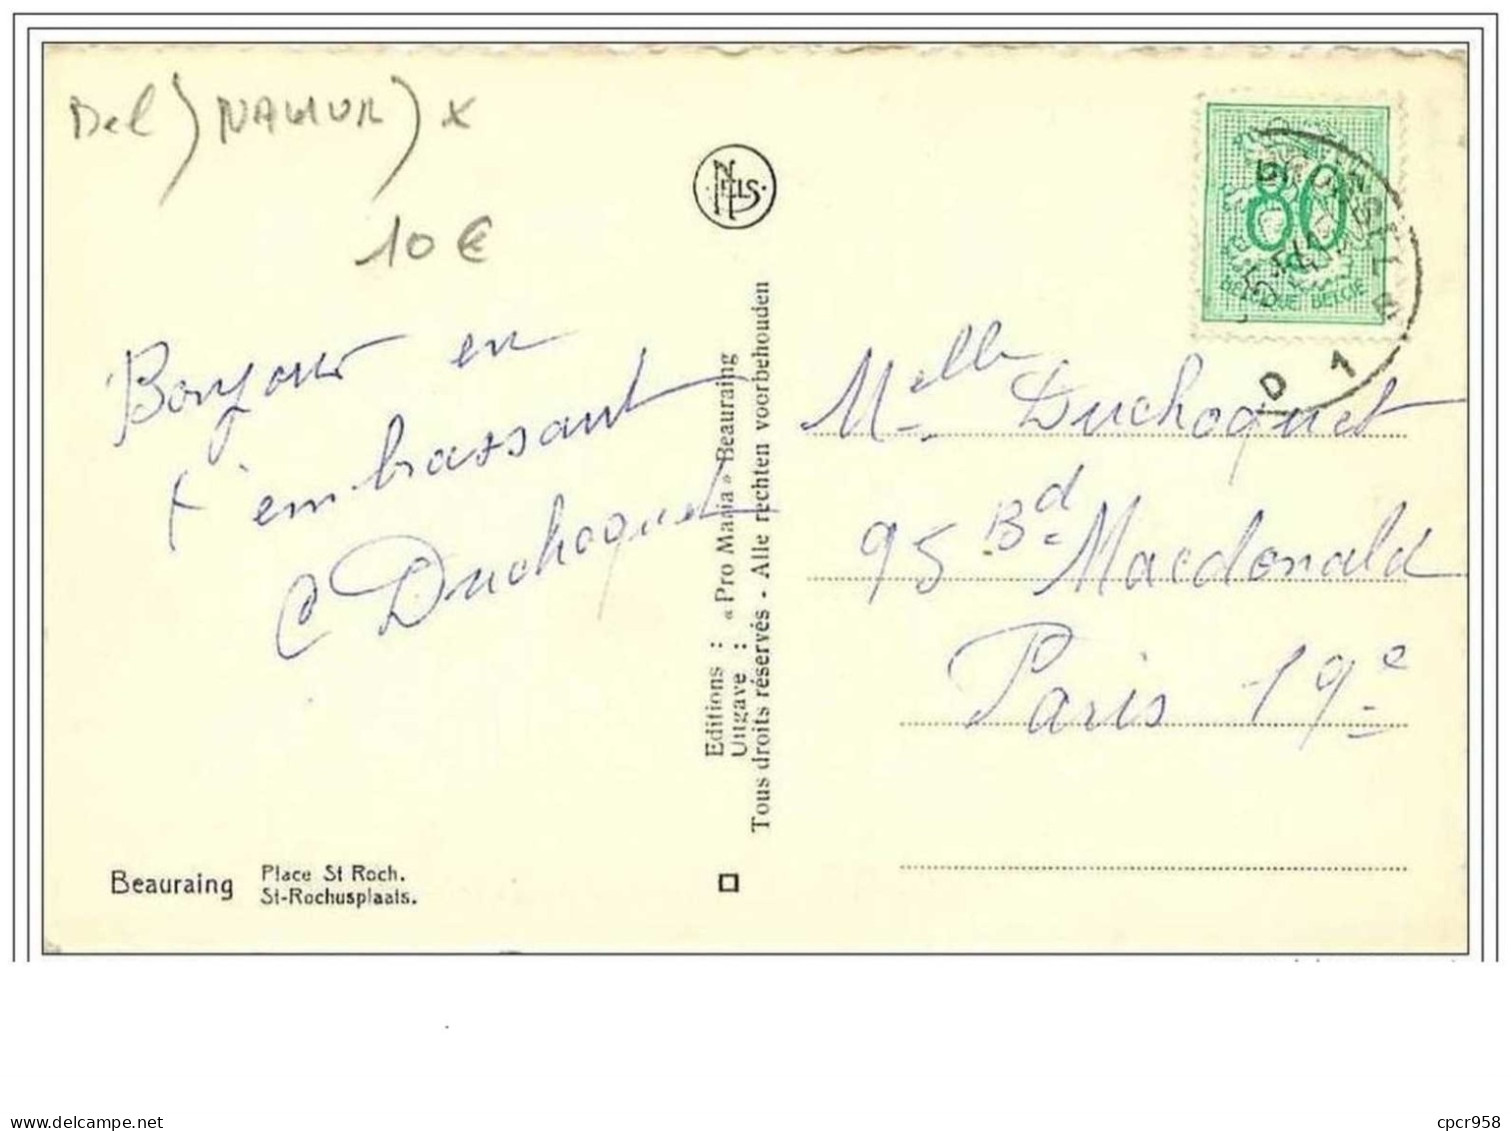 Bel) NAMUR) x
10 €
NELS
80
BELGIQUE BELGIE
D 1
Bonjour en
t'embrassant
C Duchoquet
Melle Duchoquet
95 Bd Macdonald
Paris 19e
Editions : « Pro Maria » Beauraing
Uitgave :
Tous droits réservés - Alle rechten voorbehouden
Beauraing
Place St Roch.
St-Rochusplaats.
delcampe.net
cpcr958